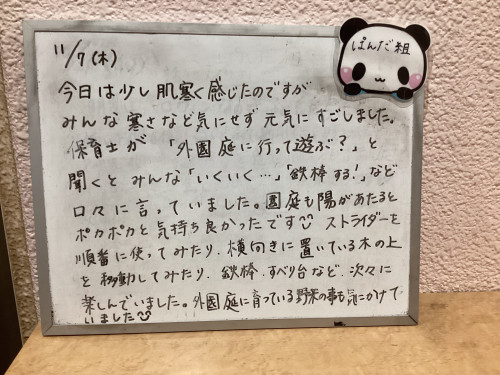 11/7(木)
ぱんだ組
今日は少し肌寒く感じたのですが
みんな寒さなど気にせず元気にすごしました。
保育士が 「外園庭に行って遊ぶ?」と
聞くとみんな「いくいく…」「鉄棒する!」など
口々に言っていました。園庭も陽があたると
ポカポカと気持ち良かったです ストライダーを
順番に使ってみたり、横向きに置いている木の上
を移動してみたり、鉄棒、すべり台など、次々に
楽しんでいました。外園庭に育っている野菜の事も気にかけて
いました